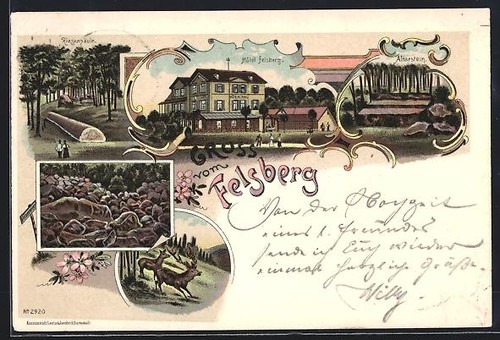 Riesensäule.
Hôtel Felsberg.
Altarstein.
GRUSS
vom
FELSBERG
Von der Hochzeit
eines l. Freundes
sende ich Euch wieder
einmal herzliche Grüße.
Willy.
No 2920